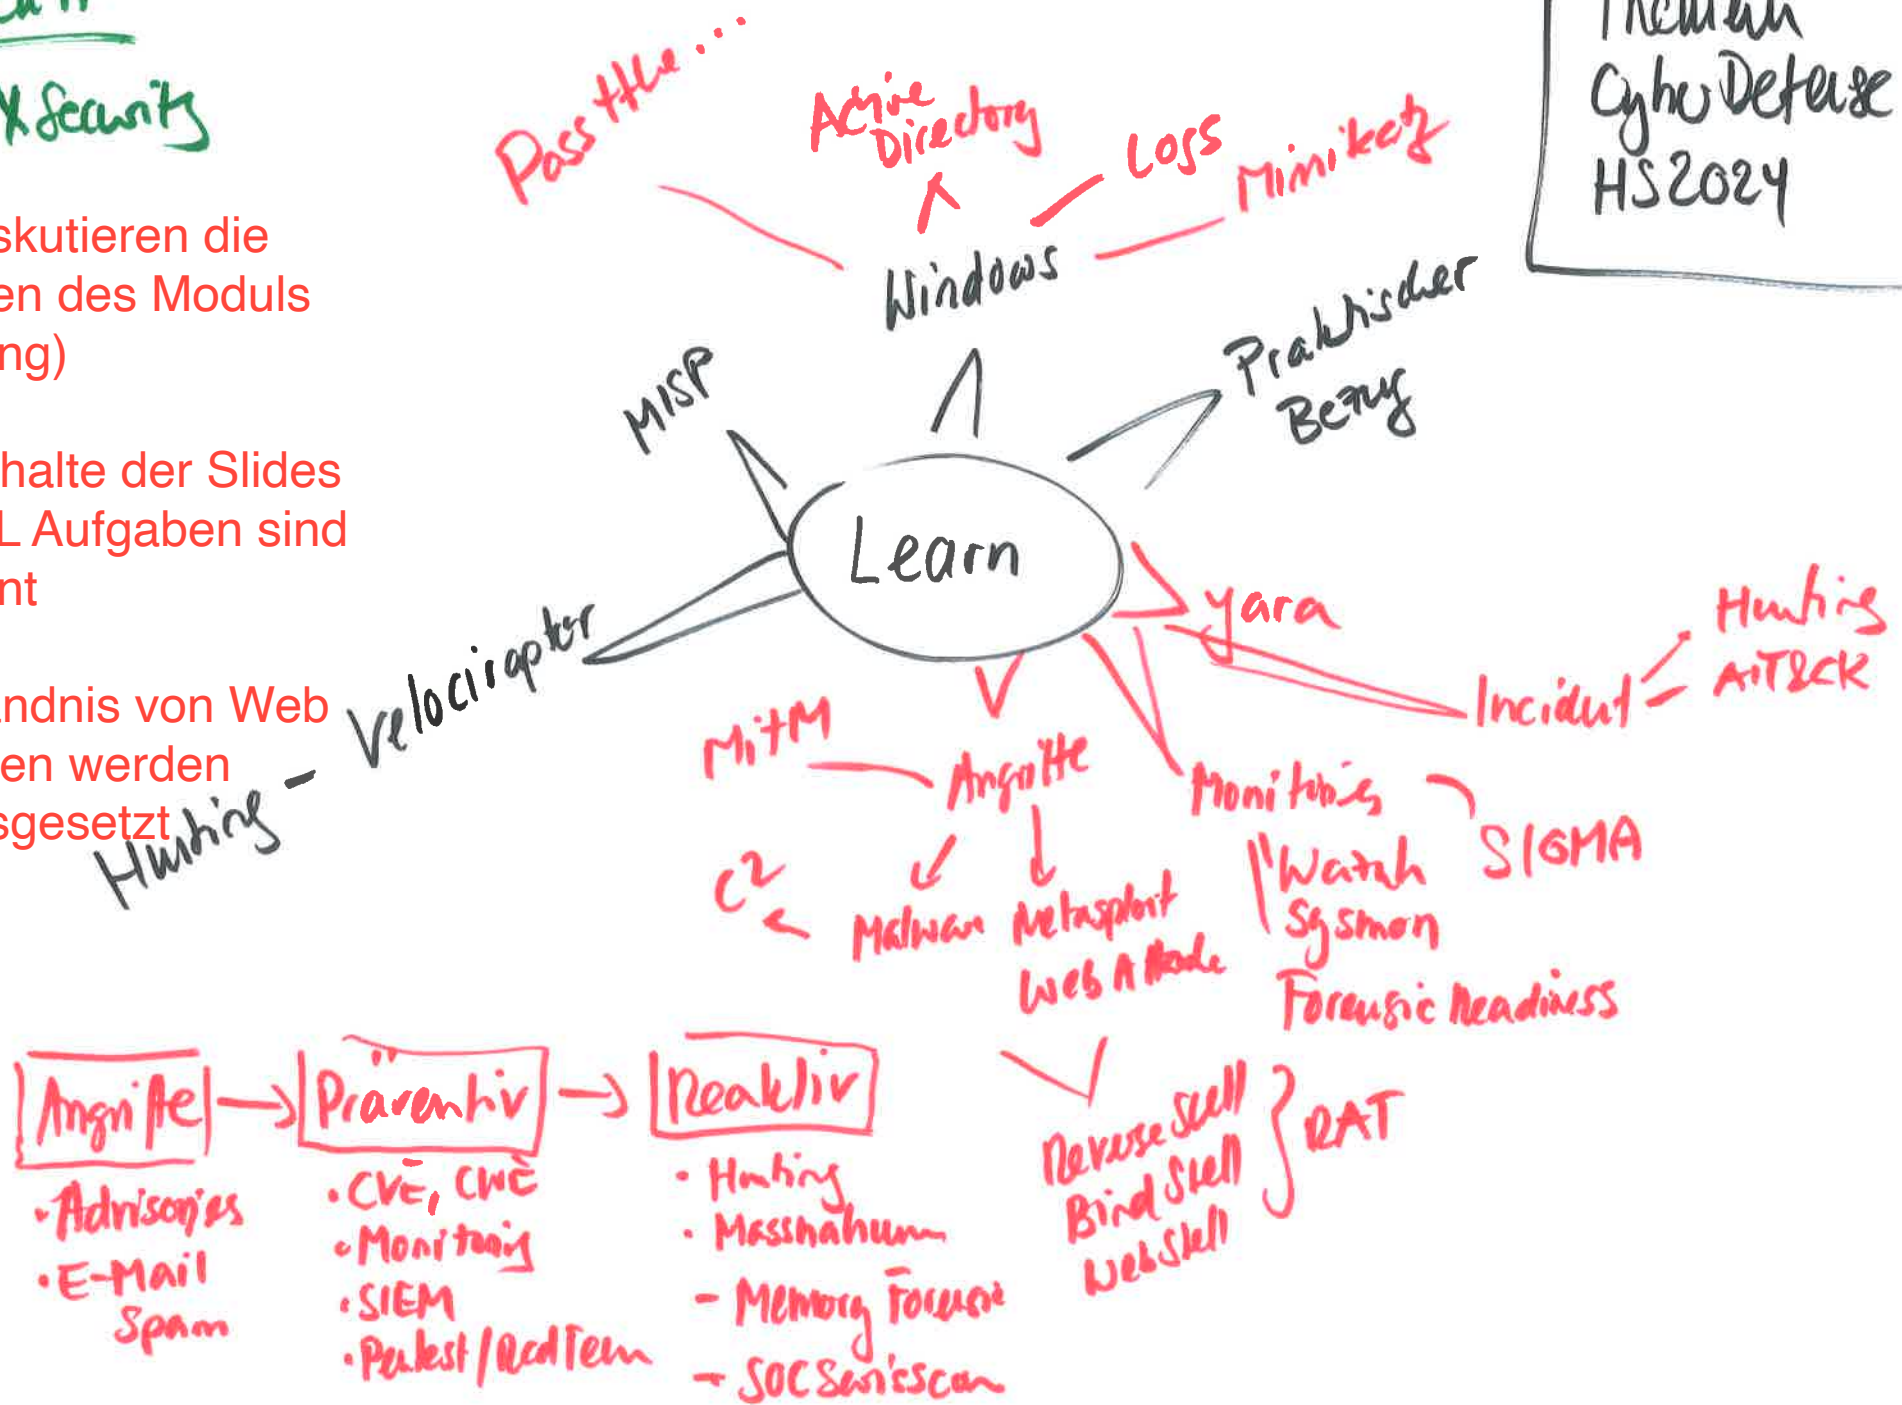 X Security
skutieren die
en des Moduls
ng)
halte der Slides
L Aufgaben sind
nt
ndnis von Web
en werden
sgesetzt
Themen
CyberDefense
HS2024
Pass the ...
Active
Directory
Logs
Mimikatz
Windows
MISP
Praktischer
Bezug
Learn
Velociraptor
Hunting -
Yara
Incident
Hunting
ATT&CK
MitM
Angriffe
Monitoring
SIGMA
C2
Malware
Metasploit
Web Attacke
Wazuh
Sysmon
Forensic Readiness
Reverse Shell
Bind Shell
WebShell
RAT
Angriffe
Präventiv
Reaktiv
• Advisories
• E-Mail
Spam
• CVE, CWE
• Monitoring
• SIEM
• Pentest / RedTeam
• Hunting
• Massnahmen
- Memory Forensic
- SOC Swisscom